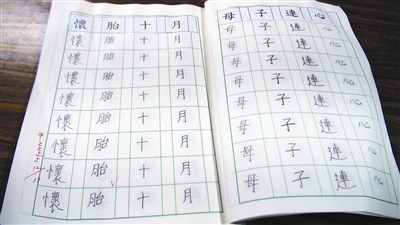 懷胎十月
懷胎十月
懷胎十月
懷胎十月
懷胎十月
懷胎十月
懷胎十月
懷胎十月
懷胎十月
母子連心
母子連心
母子連心
母子連心
母子連心
母子連心
母子連心
母子連心
母子連心